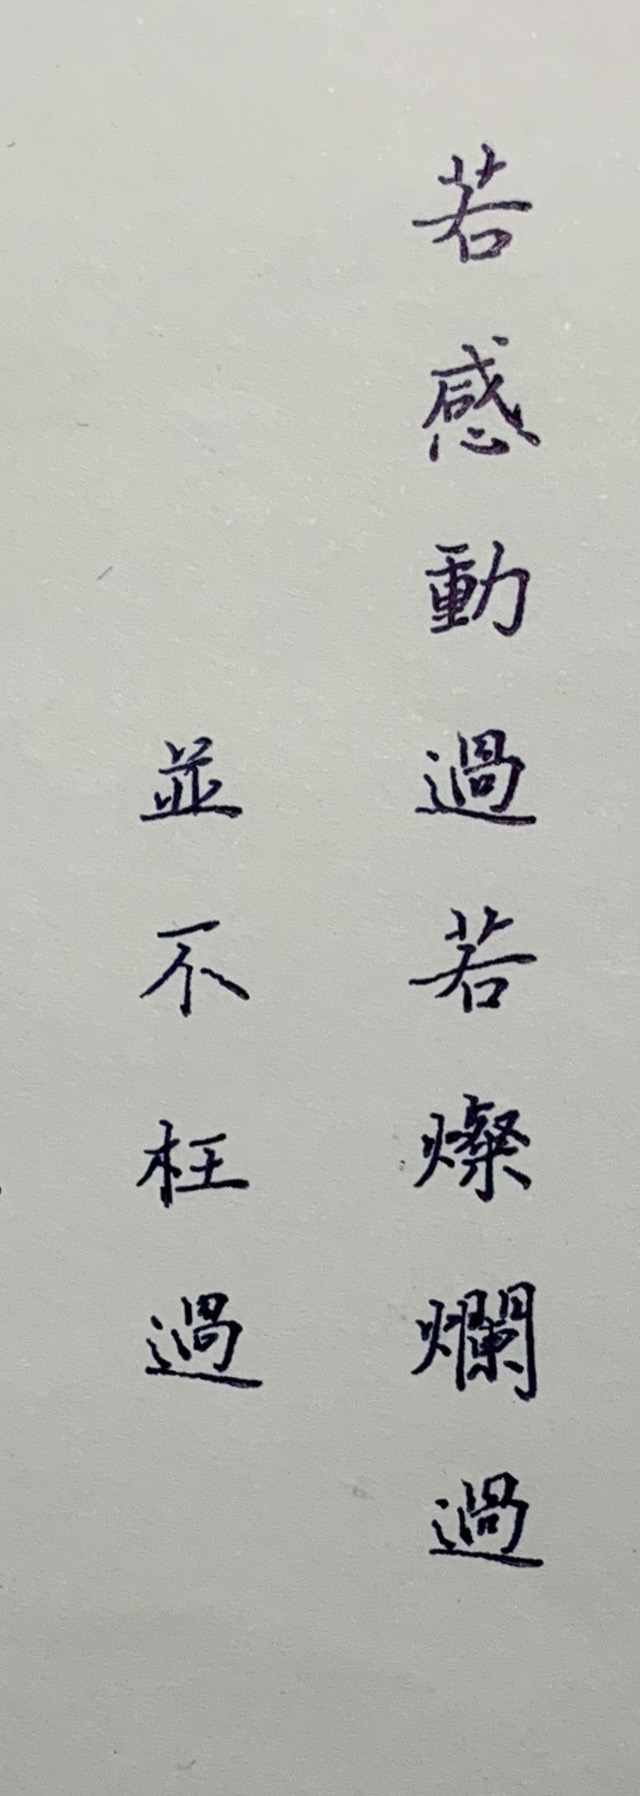 若感動過若燦爛過
並不枉過